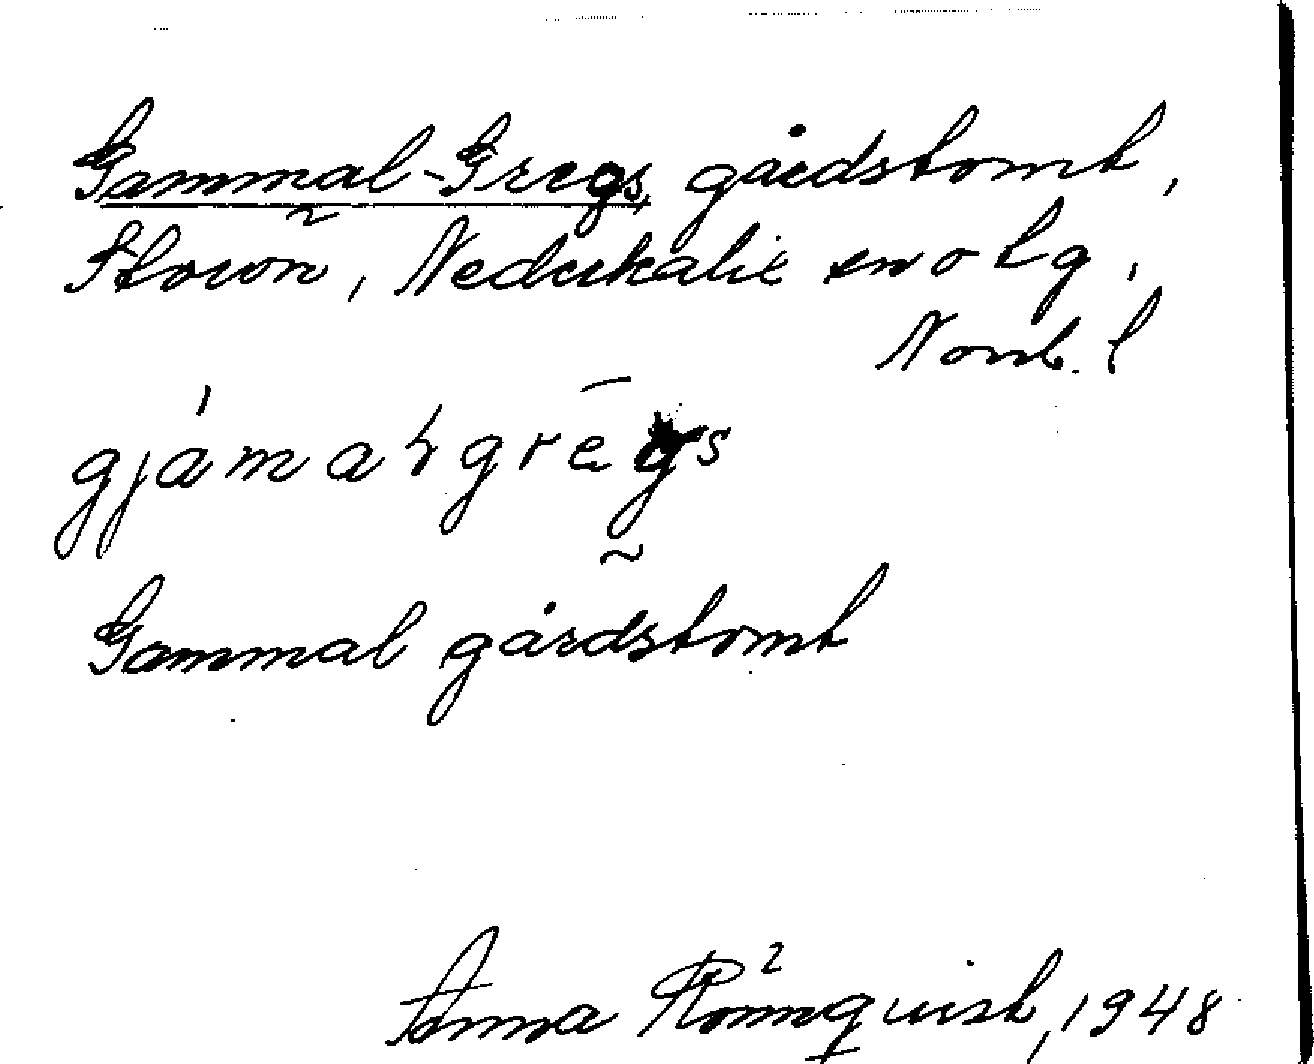 Gammal-Gregs, gårdstomt,
Storön, Nederkalix snolg,
Norrb. l
gjámaλgrēgs
Gammal gårdstomt
Anna Rönnquist, 1948